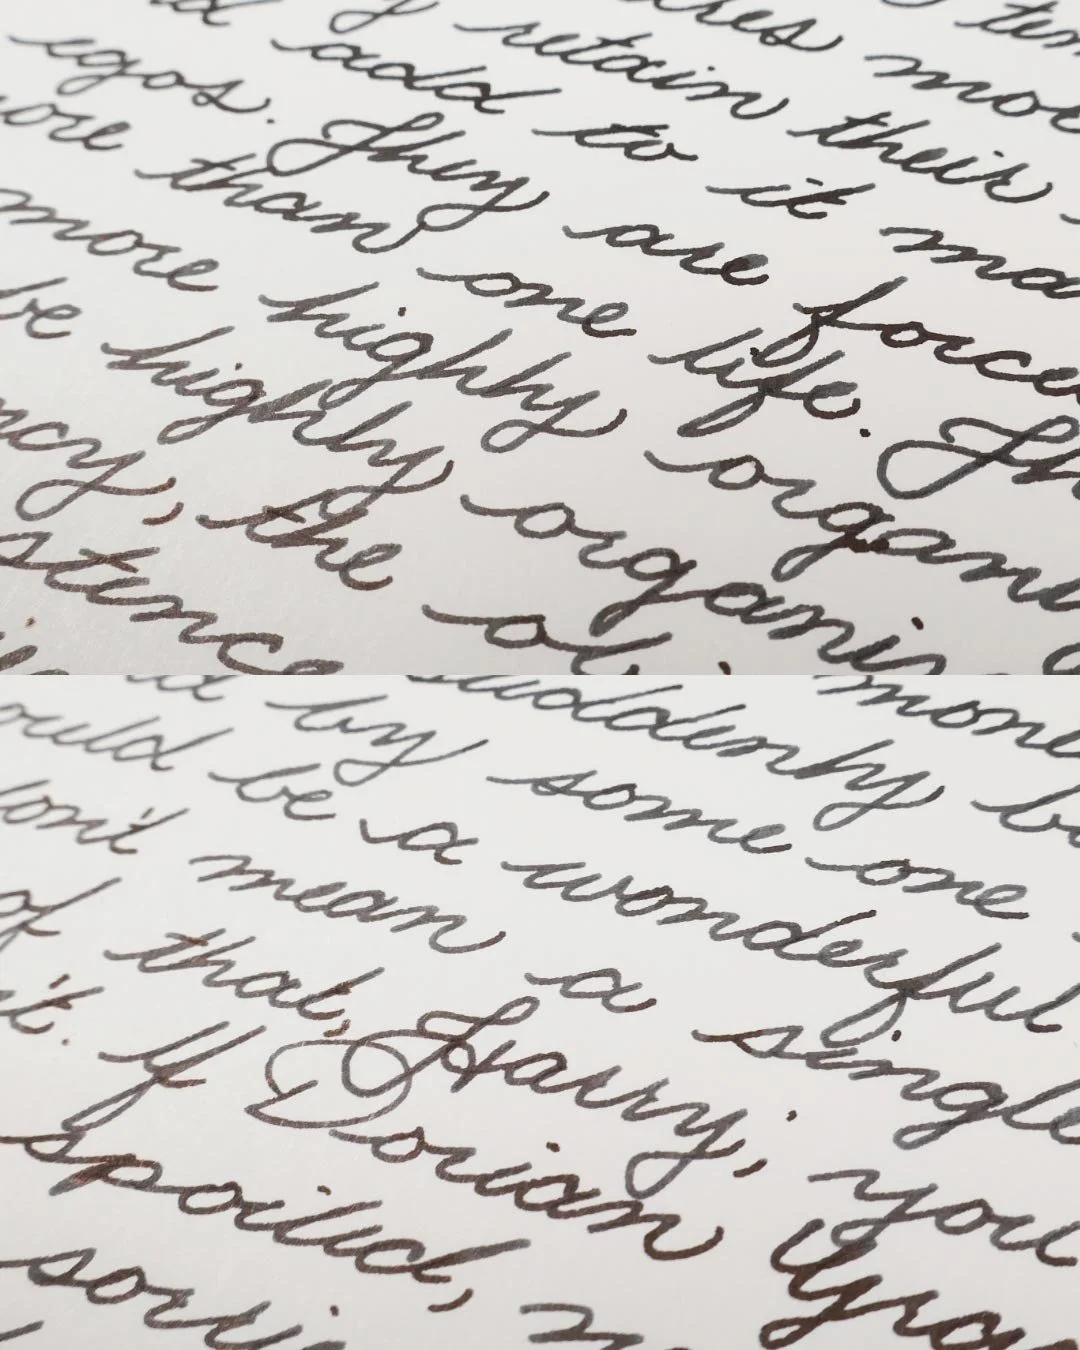 ten
res more
retain their
d add to it ma
egos. They are force
ore than one life. Th
more highly organi
be highly organi
ncy, the ob
stence
mone
suddenly b
d by some one
ould be a wonderful
don't mean a single
of that, Harry, you
it. If Dorian Gra
spoiled, m
sorri